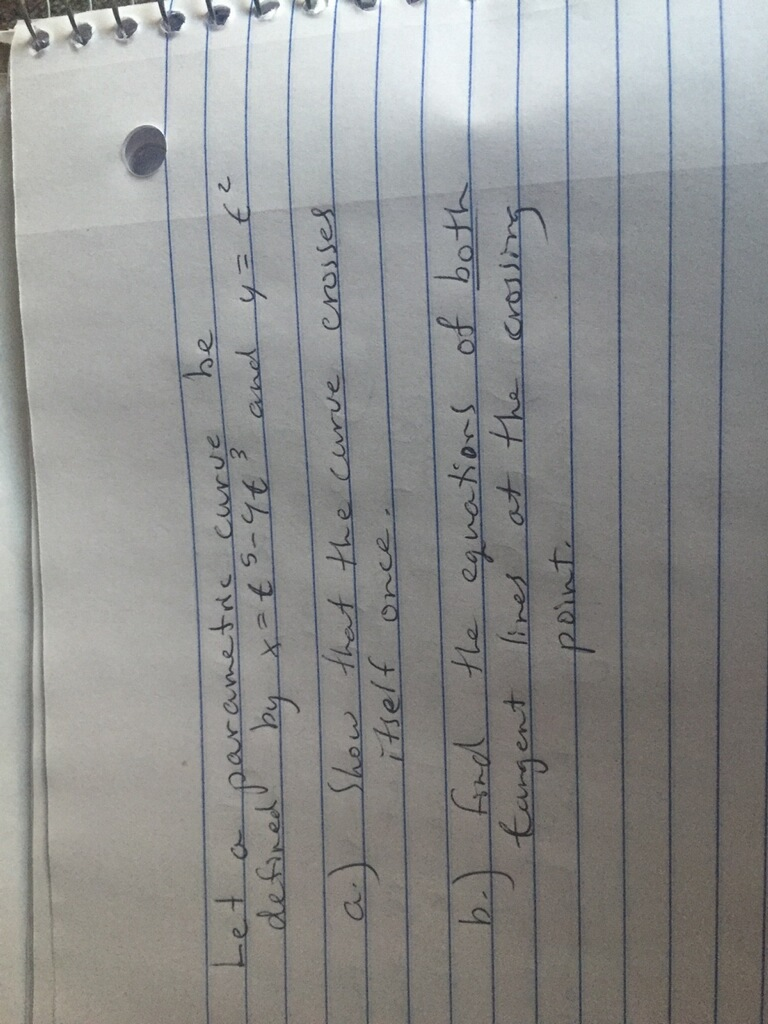 Let a parametric curve be
defined by x = t⁵ - 4t³ and y = t²
a.) Show that the curve crosses
itself once.
b.) find the equations of both
tangent lines at the crossing
point.